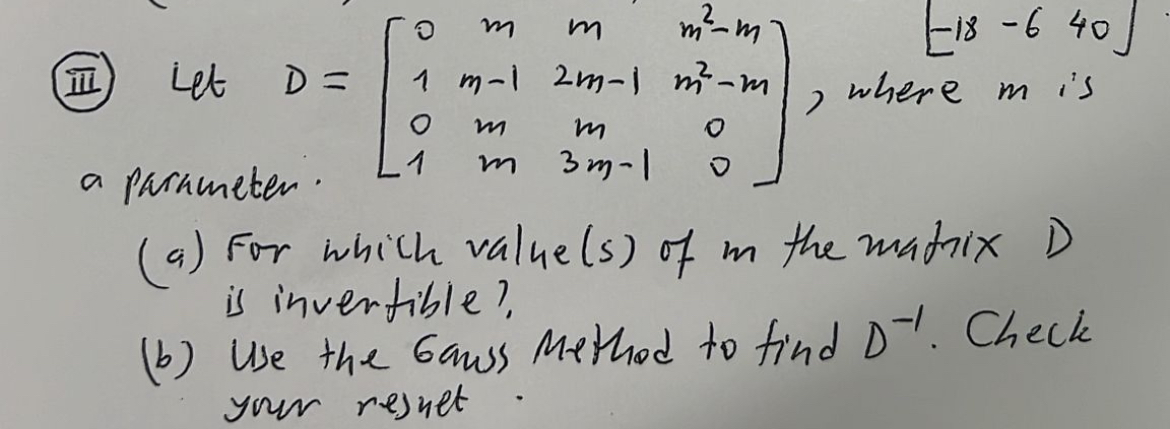 [-18 -6 40]
III Let D = [0 m m m²-m
1 m-1 2m-1 m²-m
0 m m 0
1 m 3m-1 0], where m is
a parameter.
(a) For which value(s) of m the matrix D
is invertible?
(b) Use the Gauss Method to find D⁻¹. Check
your result.